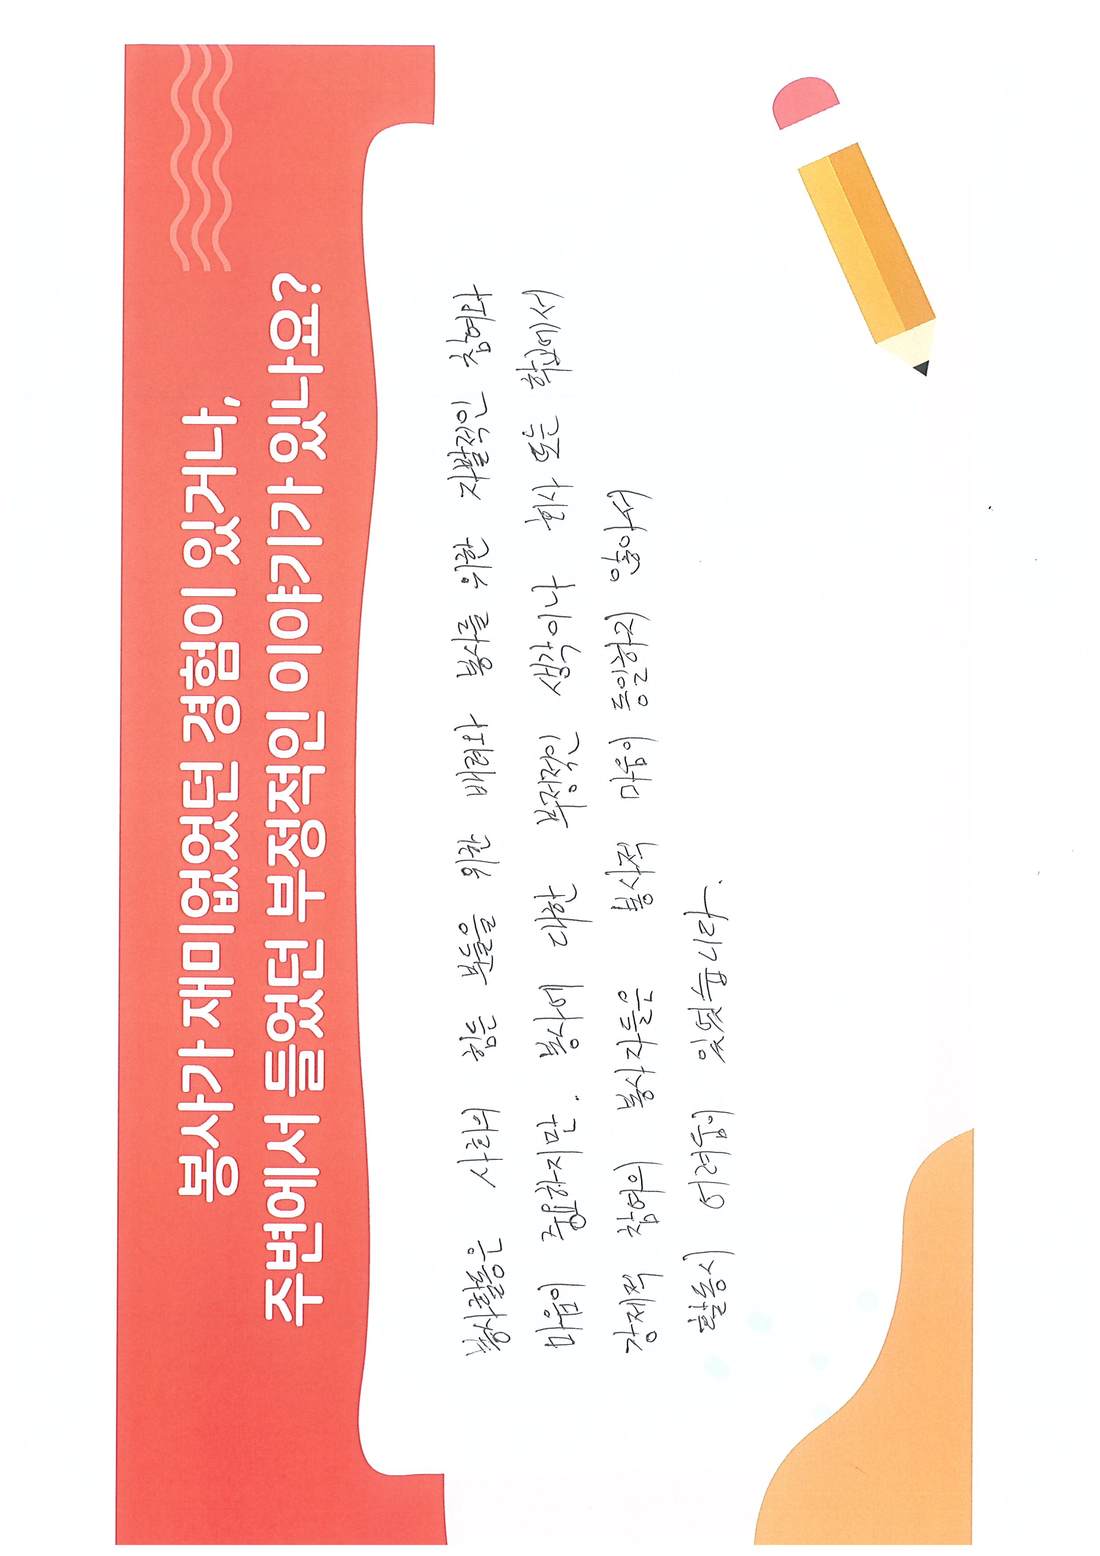 봉사가 재미없었던 경험이 있거나,
주변에서 들었던 부정적인 이야기가 있나요?
봉사활동은 사회의 힘든 분들을 위한 배려와 봉사를 위한 자발적인 참여와
마음이 중요하지만. 봉사에 대한 부정적인 생각이나 회사 또는 학교에서
강제적 참여의 봉사자들은 봉사적 마음이 동일하지 않아서
활동시 어려움이 있었습니다.